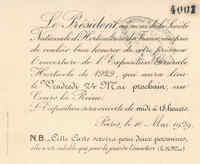 4005
Le Président
Nationale d'Horticulture de France vous prie
de vouloir bien honorer de votre présence
l'ouverture de l'Exposition Générale
Horticole de 1929, qui aura lieu
le Vendredi 24 Mai prochain, au
Cours la Reine.
L'Exposition sera ouverte de midi à 18 heures.
Paris, le 10 Mai 1929.
N.B. _ Cette Carte servira pour deux personnes,
elle n'est valable que pour la journée